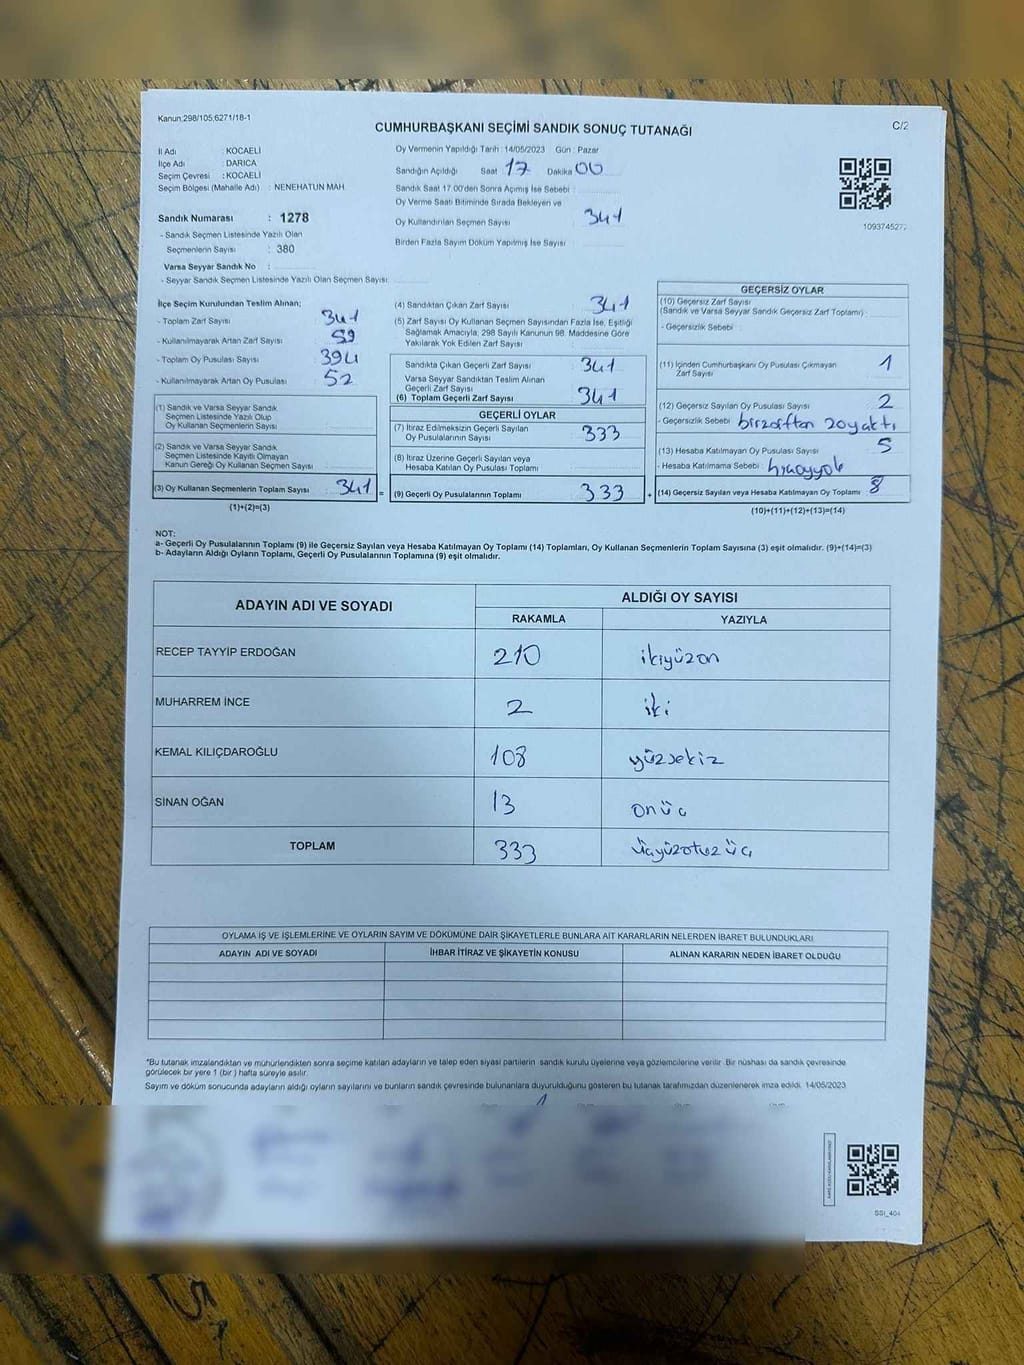 Kanun:298/105;6271/18-1
C/2
CUMHURBAŞKANI SEÇİMİ SANDIK SONUÇ TUTANAĞI
İl Adı : KOCAELİ
İlçe Adı : DARICA
Seçim Çevresi : KOCAELİ
Seçim Bölgesi (Mahalle Adı) : NENEHATUN MAH.
Sandık Numarası : 1278
- Sandık Seçmen Listesinde Yazılı Olan
Seçmenlerin Sayısı : 380
Varsa Seyyar Sandık No :
- Seyyar Sandık Seçmen Listesinde Yazılı Olan Seçmen Sayısı:
Oy Vermenin Yapıldığı Tarih : 14/05/2023 Gün : Pazar
Sandığın Açıldığı Saat 17 Dakika 00
Sandık Saat 17.00'den Sonra Açımış İse Sebebi :
Oy Verme Saati Bitiminde Sırada Bekleyen ve
Oy Kullandırılan Seçmen Sayısı 341
Birden Fazla Sayım Döküm Yapılmış İse Sayısı :
İlçe Seçim Kurulundan Teslim Alınan;
- Toplam Zarf Sayısı : 341
- Kullanılmayarak Artan Zarf Sayısı : 59
- Toplam Oy Pusulası Sayısı : 394
- Kullanılmayarak Artan Oy Pusulası : 52
(1) Sandık ve Varsa Seyyar Sandık
Seçmen Listesinde Yazılı Olup
Oy Kullanan Seçmenlerin Sayısı :
(2) Sandık ve Varsa Seyyar Sandık
Seçmen Listesinde Kayıtlı Olmayan
Kanun Gereği Oy Kullanan Seçmen Sayısı :
(3) Oy Kullanan Seçmenlerin Toplam Sayısı : 341 =
(1)+(2)=(3)
(4) Sandıktan Çıkan Zarf Sayısı : 341
(5) Zarf Sayısı Oy Kullanan Seçmen Sayısından Fazla İse, Eşitliği
Sağlamak Amacıyla, 298 Sayılı Kanunun 98. Maddesine Göre
Yakılarak Yok Edilen Zarf Sayısı :
Sandıkta Çıkan Geçerli Zarf Sayısı : 341
Varsa Seyyar Sandıktan Teslim Alınan
Geçerli Zarf Sayısı :
(6) Toplam Geçerli Zarf Sayısı : 341
GEÇERLİ OYLAR
(7) İtiraz Edilmeksizin Geçerli Sayılan
Oy Pusulalarının Sayısı : 333
(8) İtiraz Üzerine Geçerli Sayılan veya
Hesaba Katılan Oy Pusulası Toplamı :
(9) Geçerli Oy Pusulalarının Toplamı : 333 +
GEÇERSİZ OYLAR
(10) Geçersiz Zarf Sayısı
(Sandık ve Varsa Seyyar Sandık Geçersiz Zarf Toplamı) :
- Geçersizlik Sebebi :
(11) İçinden Cumhurbaşkanı Oy Pusulası Çıkmayan
Zarf Sayısı : 1
(12) Geçersiz Sayılan Oy Pusulası Sayısı : 2
- Geçersizlik Sebebi : birzarftan 2oyaktı
(13) Hesaba Katılmayan Oy Pusulası Sayısı : 5
- Hesaba Katılmama Sebebi :
(14) Geçersiz Sayılan veya Hesaba Katılmayan Oy Toplamı : 8
(10)+(11)+(12)+(13)=(14)
1093745277
NOT:
a- Geçerli Oy Pusulalarının Toplamı (9) ile Geçersiz Sayılan veya Hesaba Katılmayan Oy Toplamı (14) Toplamları, Oy Kullanan Seçmenlerin Toplam Sayısına (3) eşit olmalıdır. (9)+(14)=(3)
b- Adayların Aldığı Oyların Toplamı, Geçerli Oy Pusulalarının Toplamına (9) eşit olmalıdır.
ADAYIN ADI VE SOYADI ALDIĞI OY SAYISI
RAKAMLA YAZIYLA
RECEP TAYYİP ERDOĞAN 210 ikiyüzon
MUHARREM İNCE 2 iki
KEMAL KILIÇDAROĞLU 108 yüzsekiz
SİNAN OĞAN 13 onüç
TOPLAM 333 üçyüzotuzüç
OYLAMA İŞ VE İŞLEMLERİNE VE OYLARIN SAYIM VE DÖKÜMÜNE DAİR ŞİKAYETLERLE BUNLARA AİT KARARLARIN NELERDEN İBARET BULUNDUKLARI
ADAYIN ADI VE SOYADI İHBAR İTİRAZ VE ŞİKAYETİN KONUSU ALINAN KARARIN NEDEN İBARET OLDUĞU
*Bu tutanak imzalandıktan ve mühürlendikten sonra seçime katılan adayların ve talep eden siyasi partilerin sandık kurulu üyelerine veya gözlemcilerine verilir. Bir nüshası da sandık çevresinde
görülecek bir yere 1 (bir) hafta süreyle asılır.
Sayım ve döküm sonucunda adayların aldığı oyların sayılarını ve bunların sandık çevresinde bulunanlara duyurulduğunu gösteren bu tutanak tarafımızdan düzenlenerek imza edildi. 14/05/2023
SSI_404